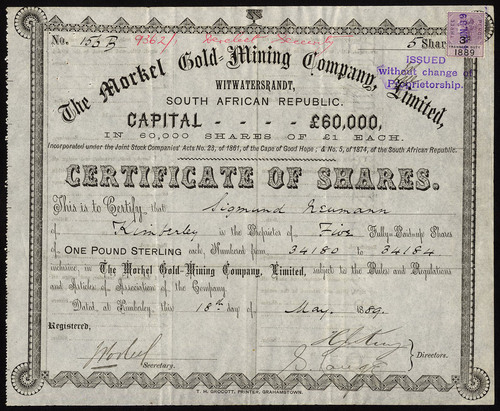 No. 153B 9362/1 5 Shares
The Morkel Gold-Mining Company, Limited,
1889
ISSUED
Without change of
Proprietorship.
WITWATERSRANDT,
SOUTH AFRICAN REPUBLIC.
CAPITAL - - - - £60,000,
IN 60,000 SHARES OF £1 EACH.
Incorporated under the Joint Stock Companies' Acts No. 23, of 1861, of the Cape of Good Hope; & No. 5, of 1874, of the South African Republic.
CERTIFICATE OF SHARES.
This is to Certify that Sigmund Neumann
of Kimberley is the Proprietor of Five Fully-Paid-up Shares
of ONE POUND STERLING each, Numbered from 34180 to 34184
inclusive, in The Morkel Gold-Mining Company, Limited, subject to the Rules and Regulations
and Articles of Association of the Company.
Dated, at Kimberley, this 18th day of May 1889.
Registered,
Secretary.
Directors.
T. H. GROCOTT, PRINTER, GRAHAMSTOWN.